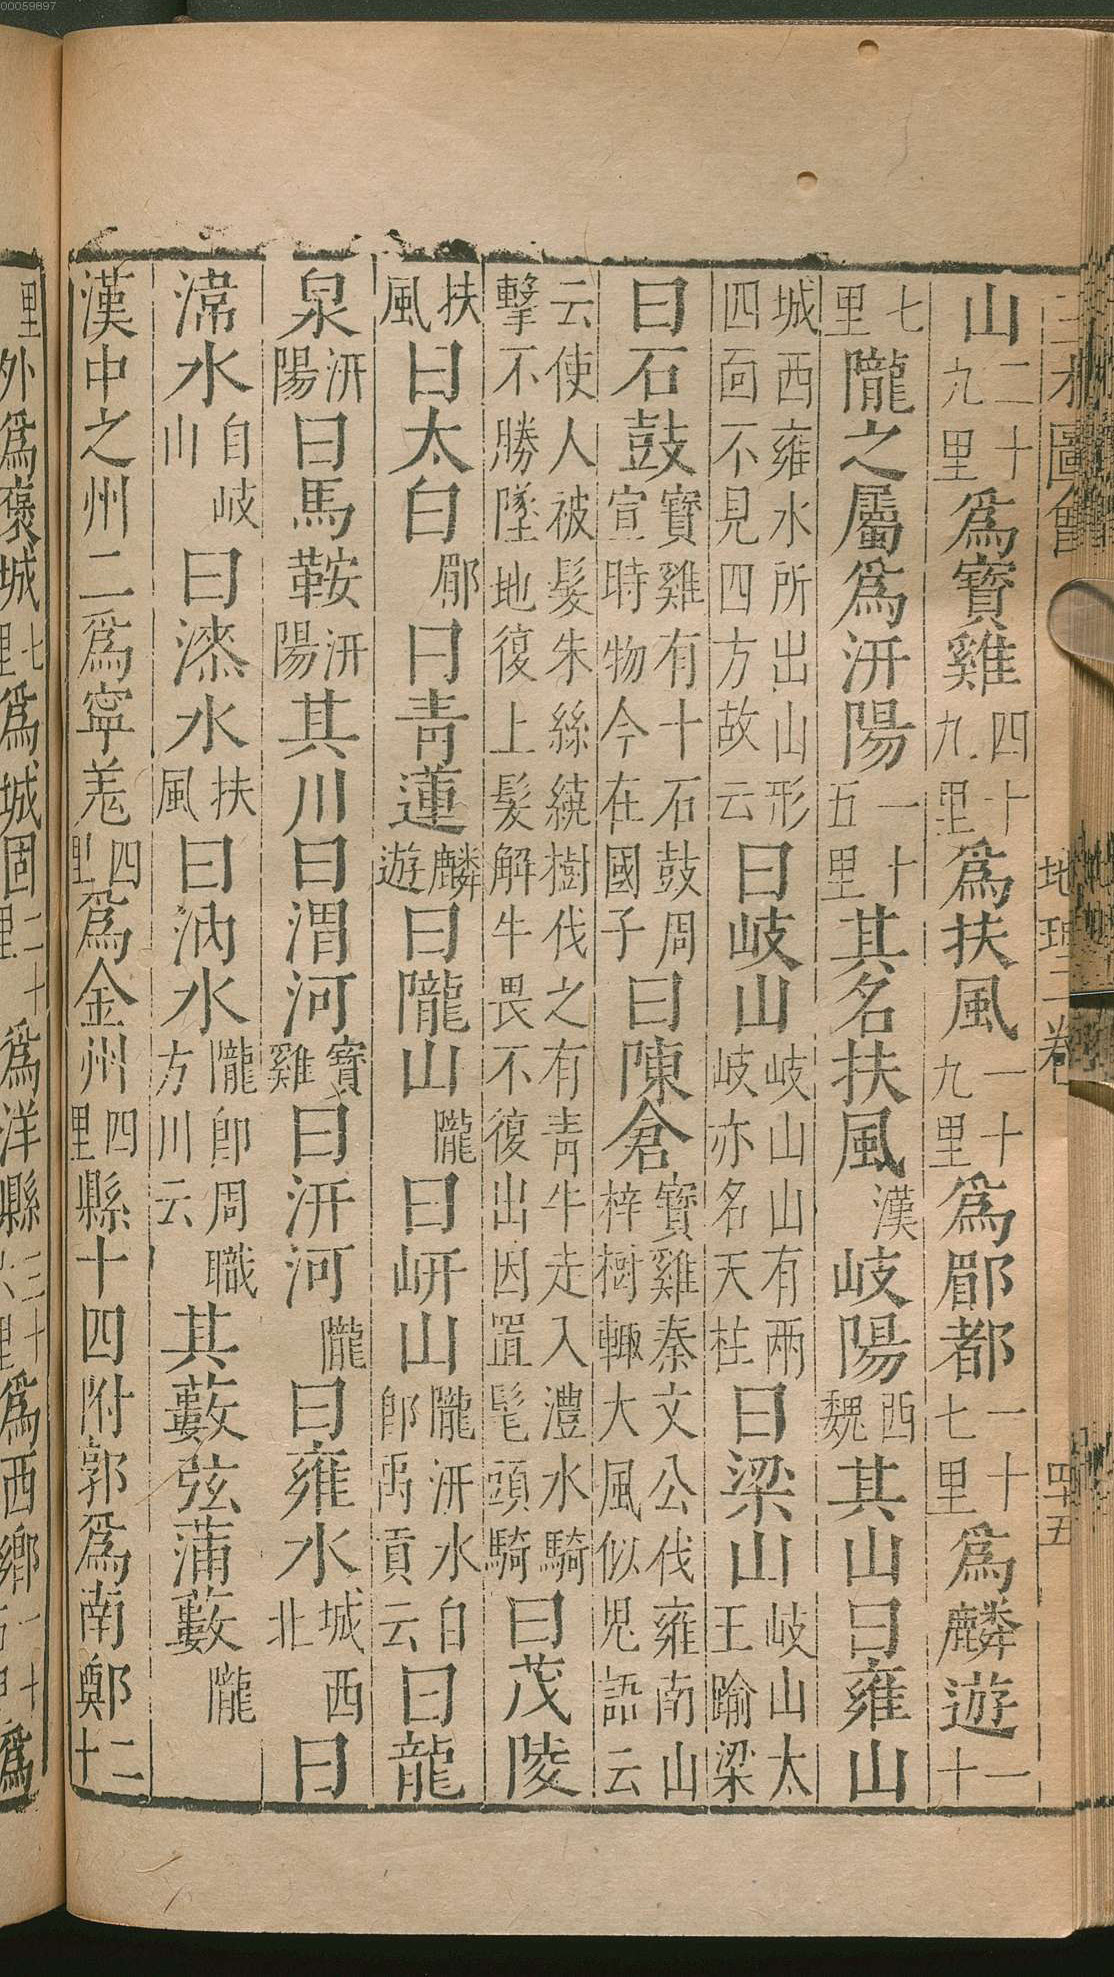 山二十九里爲寶雞四十九里爲扶風一十九里爲郿都一十七里爲麟遊一十
七里隴之屬爲汧陽一十五里其名扶風漢岐陽西魏其山曰雍山
城西雍水所出山形四面不見四方故云曰岐山岐山山有兩岐亦名天柱曰梁山岐山太王踰梁
曰石鼓寶雞有十石鼓周宣時物今在國子曰陳倉寶雞秦文公伐雍南山梓樹輒大風似鬼語云
云使人被髮朱絲繞樹伐之有青牛走入澧水騎擊不勝墜地復上髮解牛畏不復出因置髦頭騎曰茂陵
扶風曰太白郿曰青蓮麟遊曰隴山隴曰岍山隴汧水自卽禹貢云曰龍
泉汧陽曰馬鞍汧陽其川曰渭河寶雞曰汧河隴曰雍水城西北曰
湋水自岐山曰漆水扶風曰汭水隴卽周職方川云其藪弦蒲藪隴
漢中之州二爲寧羌四里爲金州四里縣十四附郭爲南鄭二十
里外爲褒城七里爲城固二十里爲洋縣三十六里爲西鄉一十里爲
地理二卷
四十五
00059897